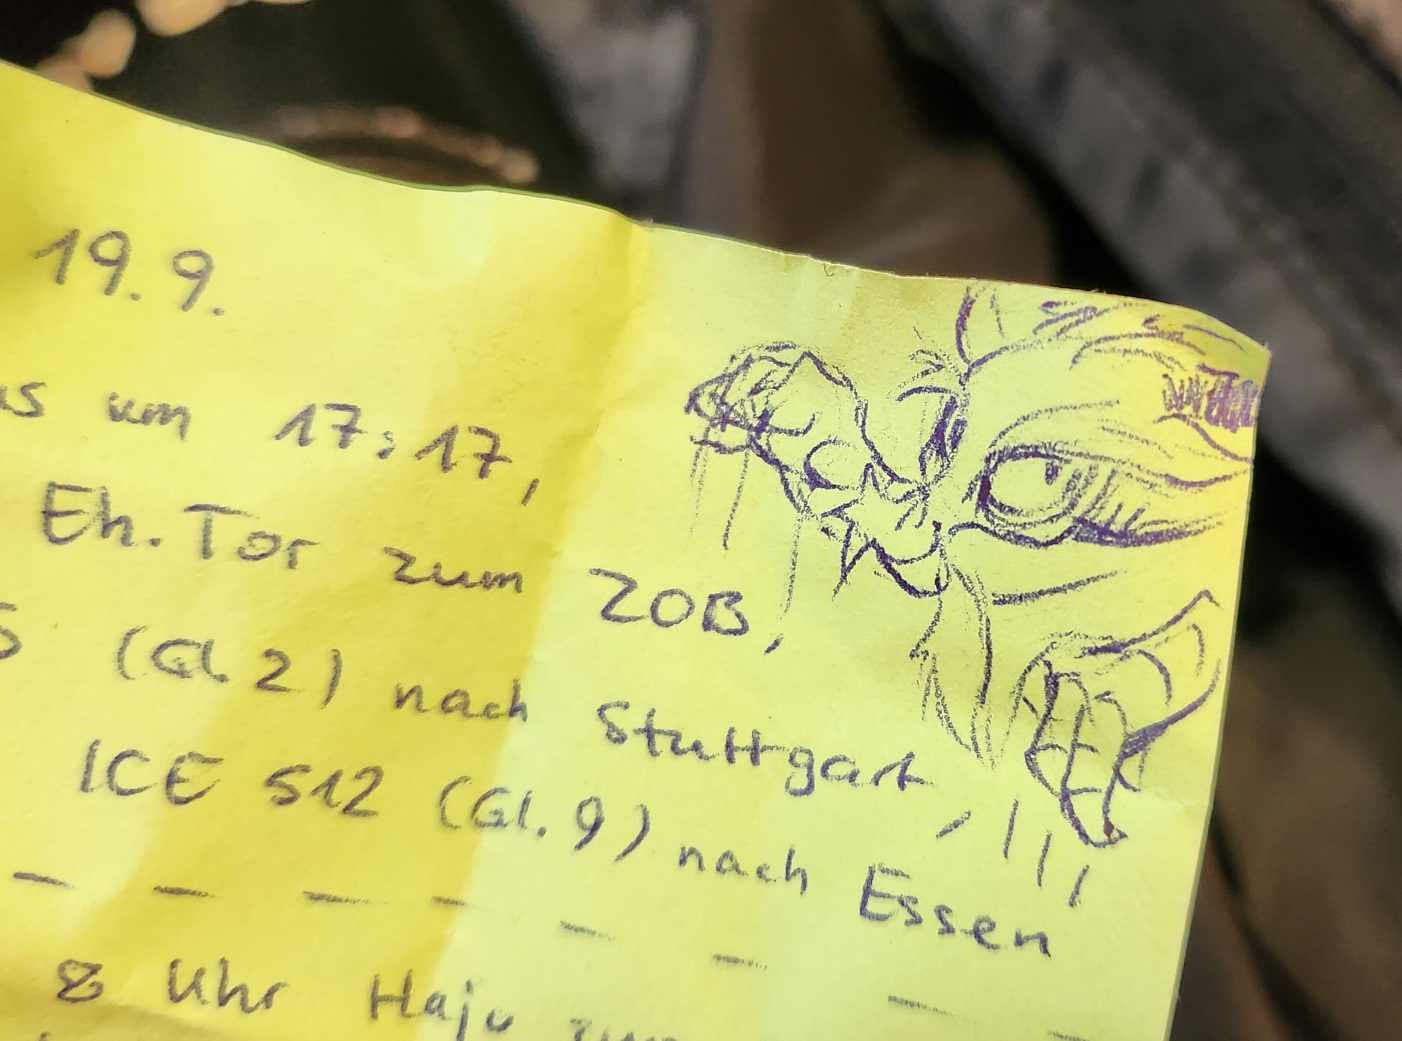 19.9.
um 17:17,
Eh. Tor zum ZOB,
(Gl. 2) nach Stuttgart,
ICE 512 (Gl. 9) nach Essen
8 Uhr Hajo